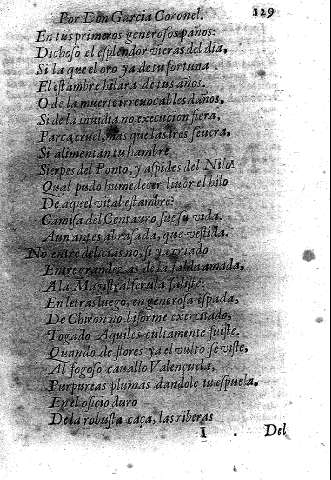 Por Don Garcia Coronel. 129
En tus primeros generosos paños:
Dichoso el esplendor vieras del dia,
Si la que el oro ya de tu fortuna
El estambre hilara de tus años.
O de la muerte irreuocables daños,
Si de la inuidia no execucion fiera,
Parca cruel, mas que las tres seuera,
Si alimentan tu hambre
Sierpes del Ponto, y aspides del Nilo:
Qual pudo humedecer liuor el hilo
De aquel vital estambre?
Camisa del Centauro fue su vida,
Aun antes abrasada, que vestida.
No entre delicias no, si ya criado
Entre grandezas de la falda amada,
A la Magistral ferula saliste:
En letras luego, en generosa espada,
De Chiron no biforme exercitado,
Togado Aquiles cultamente fuiste.
Quando de flores ya el vulto se viste,
Al fogoso cauallo Valençuela,
Purpureas plumas dandole tu espuela.
En el oficio duro
De la robusta caça, las riberas
I Del